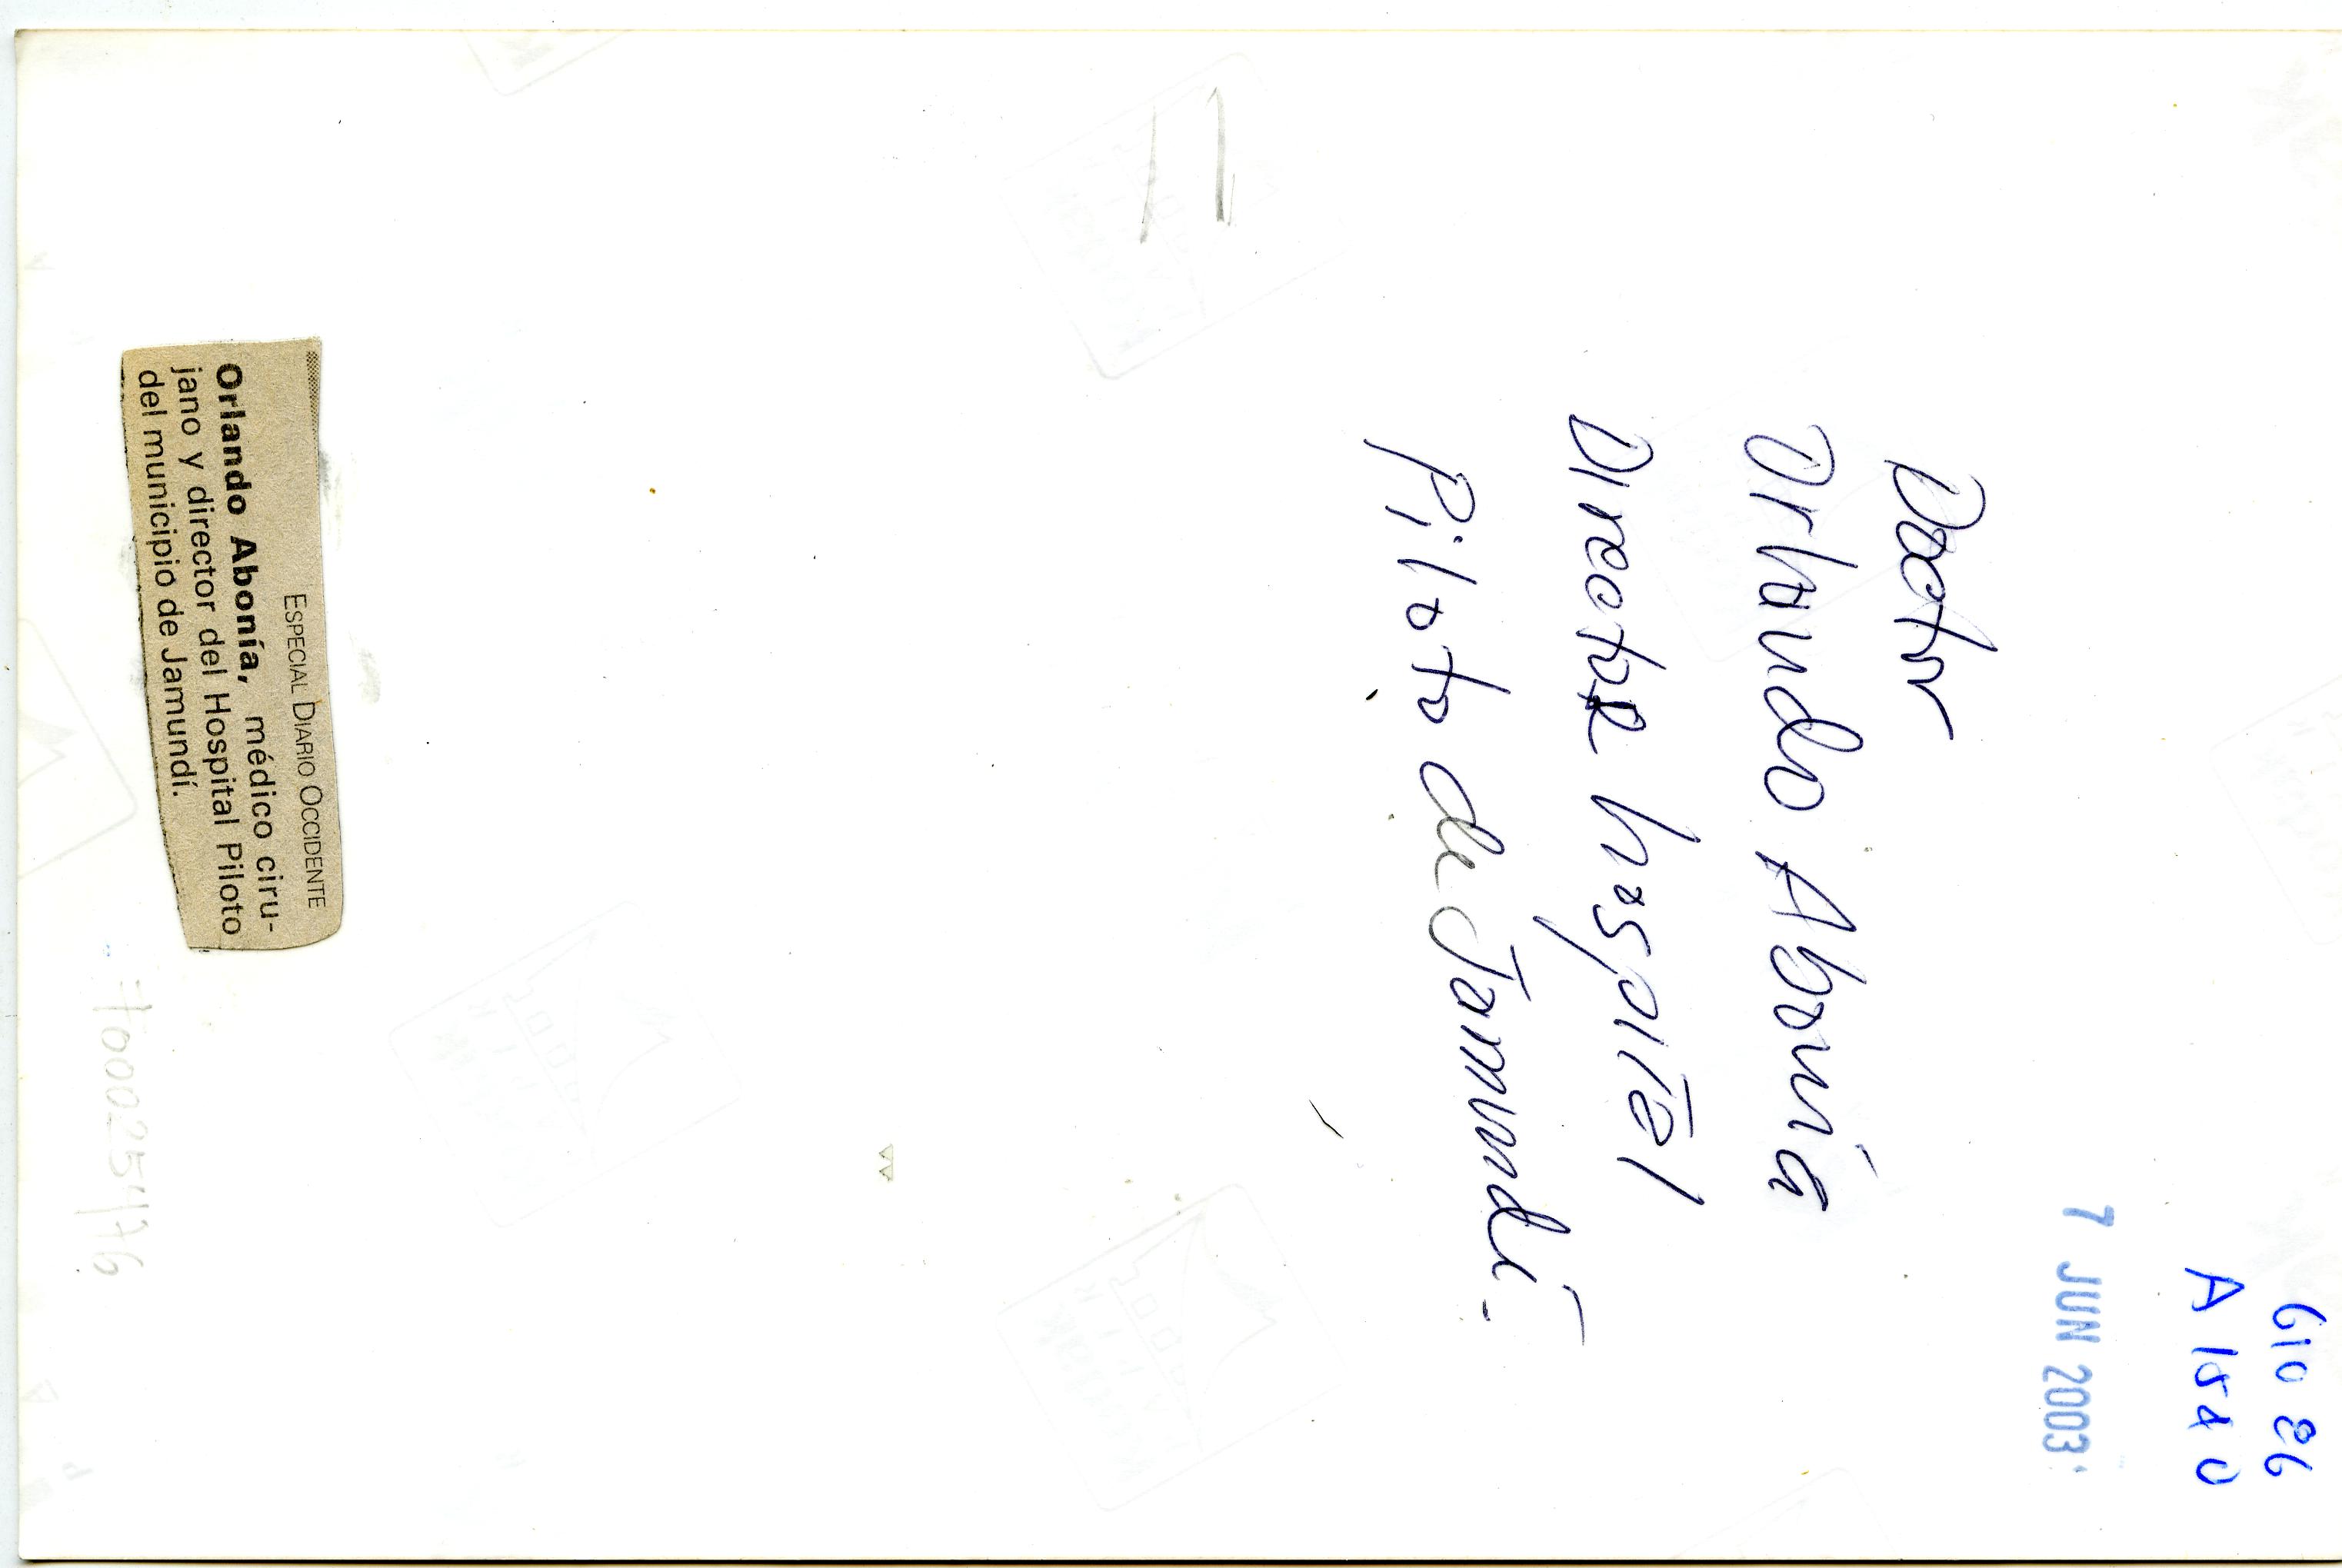 G10 86
A 1580
7 JUN 2003
Doctor
Orlando Abonía
Director hospital
Piloto de Jamundí.
11
ESPECIAL DIARIO OCCIDENTE
Orlando Abonía, médico ciru-
jano y director del Hospital Piloto
del municipio de Jamundí.